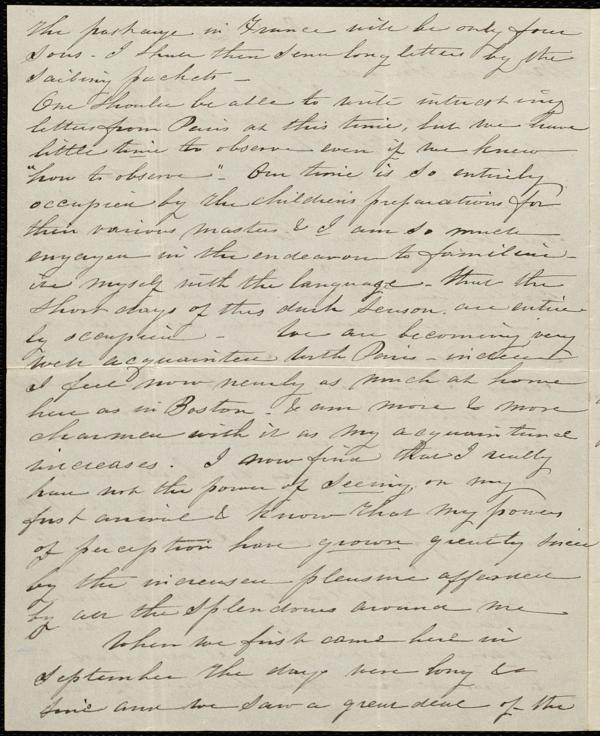 The postage in France will be only four
sous. I shall then send long letters by the
sailing packets —
One should be able to write interesting
letters from Paris at this time, but we have
little time to observe even if we knew
"how to observe". Our time is so entirely
occupied by the children's preparations for
their various masters & I am so much
engaged in the endeavor to familiar-
ize myself with the language - that the
short days of this dark season are entire
ly occupied - We are becoming very
well acquainted with Paris - indeed
I feel now nearly as much at home
here as in Boston. & am more & more
charmed with it as my acquaintance
increases. I now find that I really
had not the power of seeing, on my
first arrival & know that my powers
of perception have grown greatly since
by the increased pleasure afforded
by all the splendours around me
When we first came here in
September the days were long &
fine and we saw a great deal of the